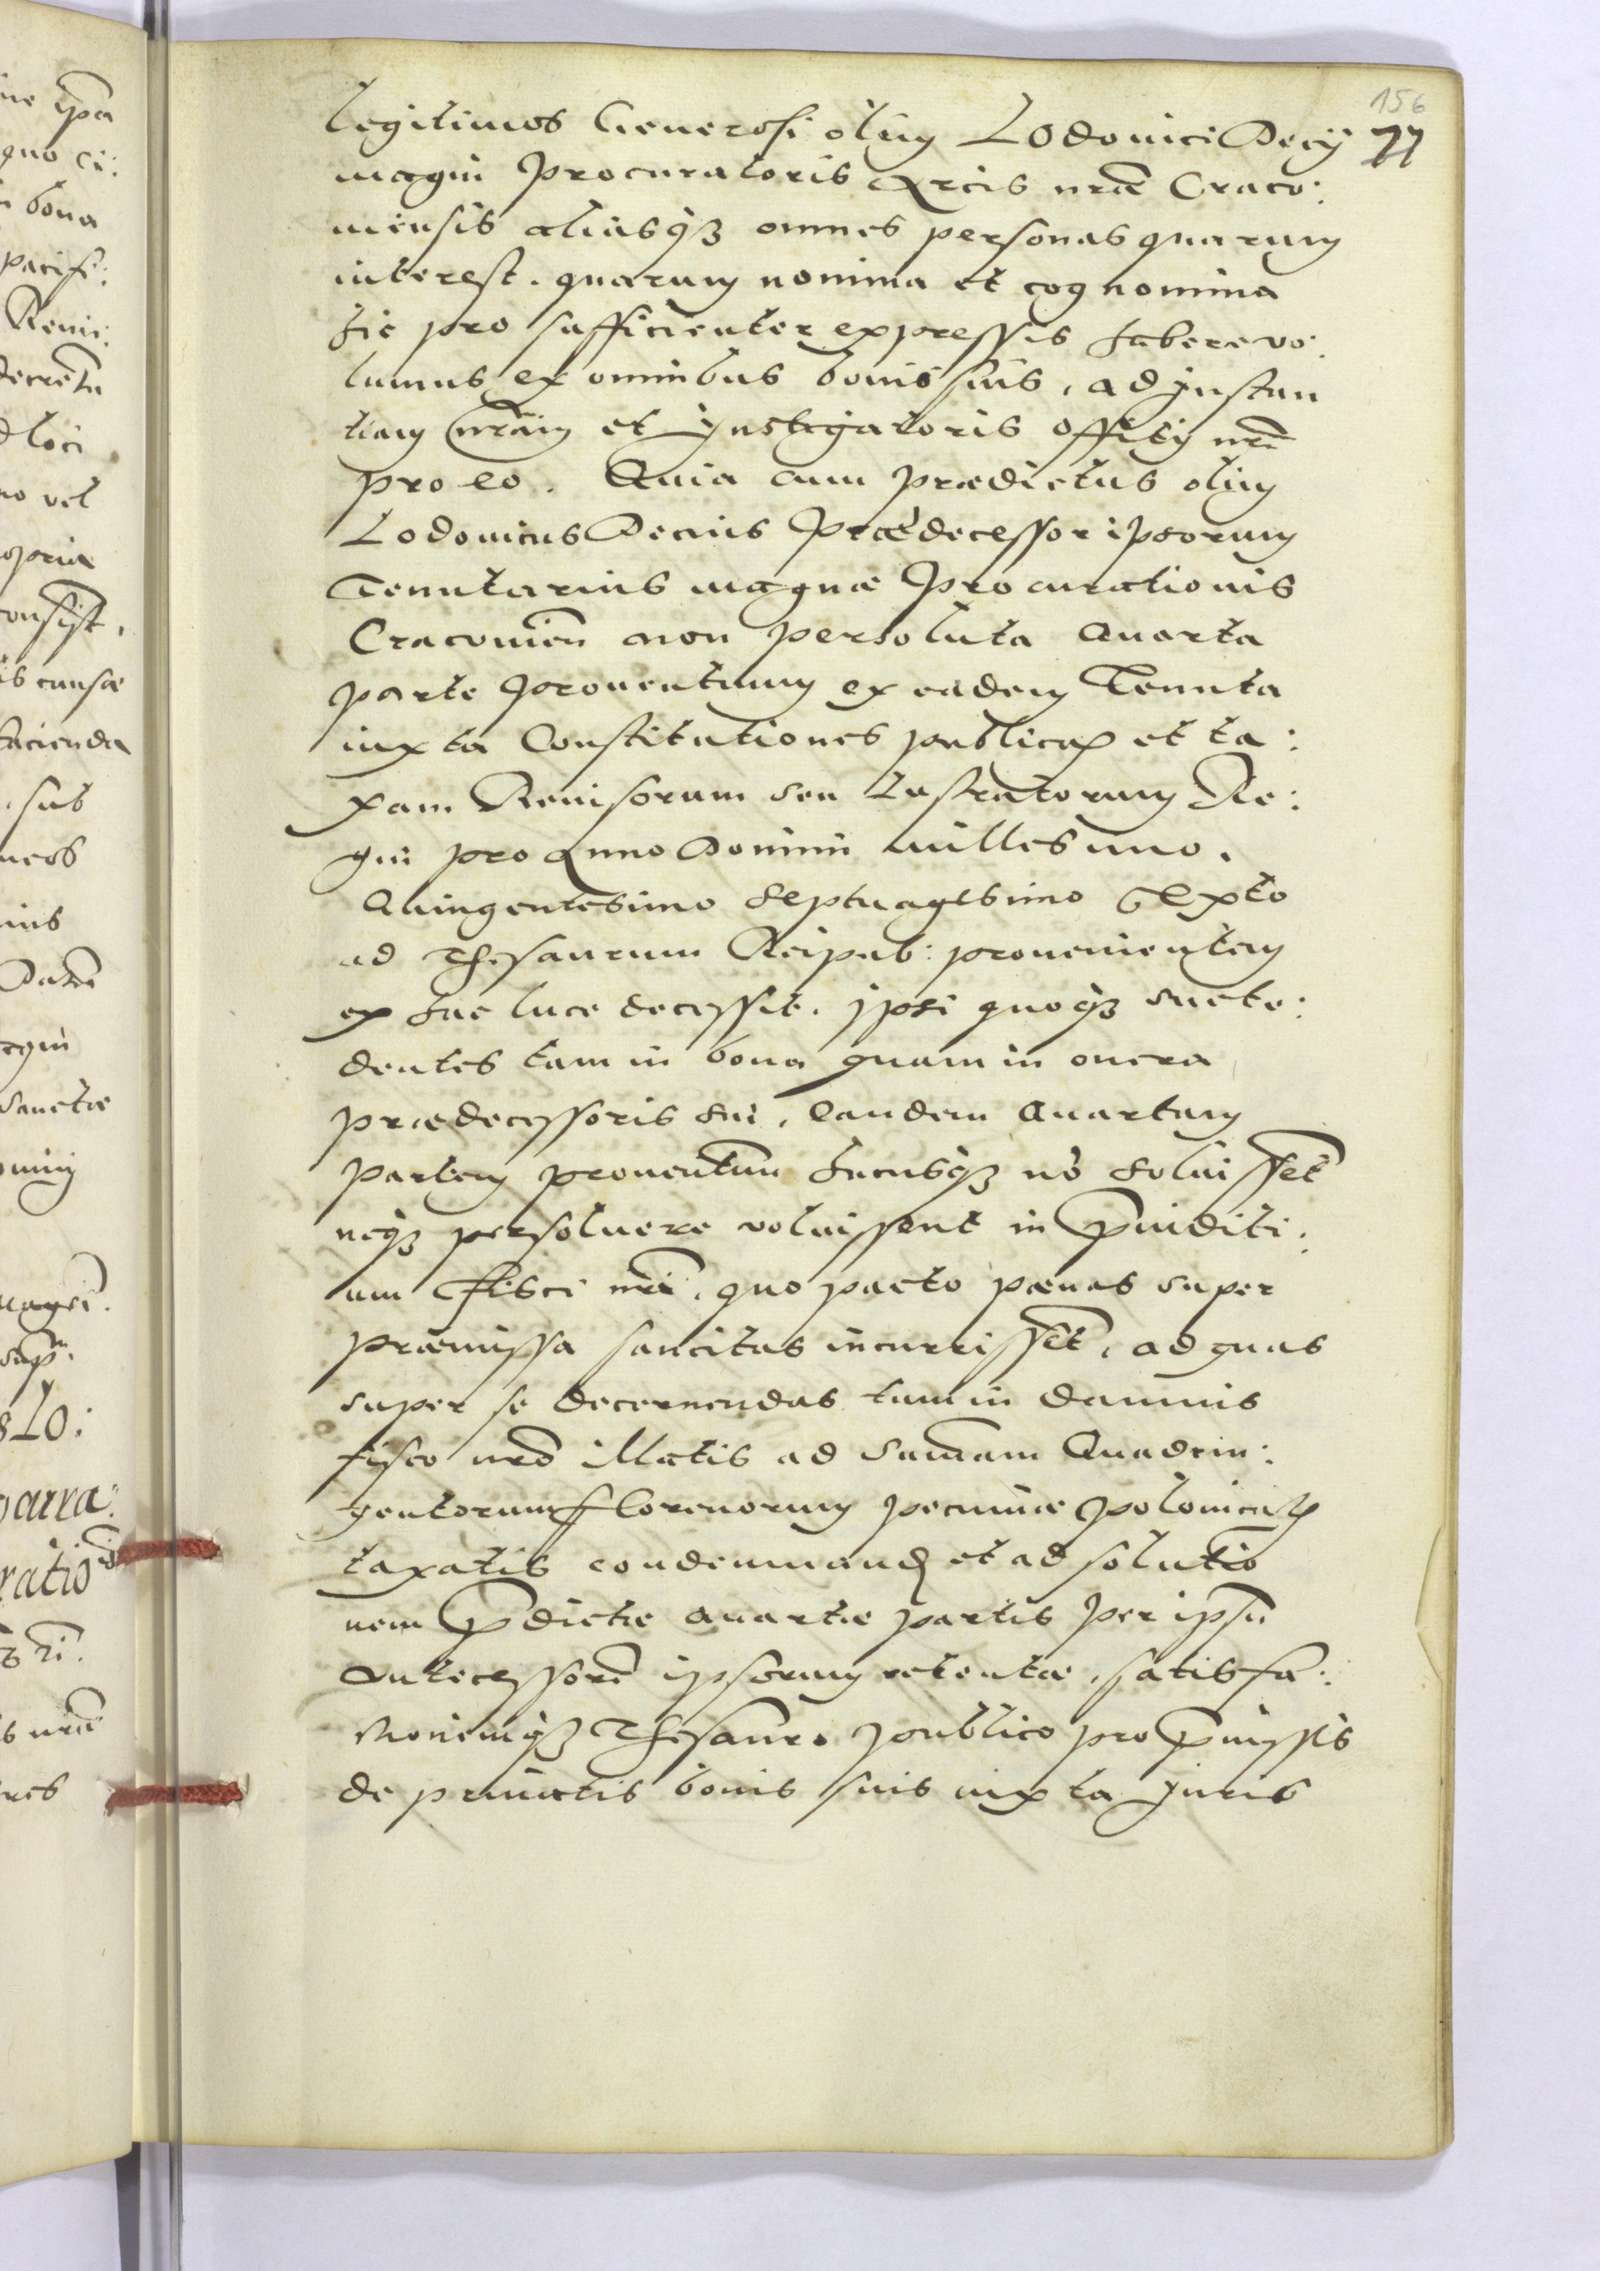 156
77
Legitimos Generosi olim Lodovici Decij
magni Procuratoris Arcis nrae Craco:
uiensis aliasqз omnes personas quarum
interest. quarum nomina et cognomina
hic pro sufficienter expressis habere vo:
lumus ex omnibus bonis suis, ad instan
tiam nram et Instigatoris Offitij nri
pro eo. Quia cum praedictus olim
Lodouicus Decius Praedecessor ipsorum
Tenutarius magnae Procurationis
Cracouien non persoluta Quarta
parte prouentuum ex eadem Tenuta
iuxta Constitutiones publicas et ta:
xam Reuisorum seu Lustratorum Re:
gni pro Anno Domini Millesimo.
Quingentesimo Septuagesimo Sexto
ad Thesaurum Reipub: prouenientem
ex hac luce decessit. ipsi quoqз succe:
dentes tam in bona quam in onera
praedecessoris sui, Eandem Quartam
Partem prouentuu hucusqз no soluisset
neqз persoluere voluissent in pniuditi:
um Fisci nri, quo pacto paenas super
praemissa sancitas incurrisset, ad quas
super se decernendas tum in damnis
fisco nro illatis ad Summam Quadrin:
gentorum florenorum pecuniae Polonicalis
taxatis condemnand et ad solutio
nem pdictae Quartae partis per ipsu
Antecessore ipsorum retentae, satisfa:
ctionemqз Thesauro publico pro pmissis
de priuatis bonis suis iuxta Iuris